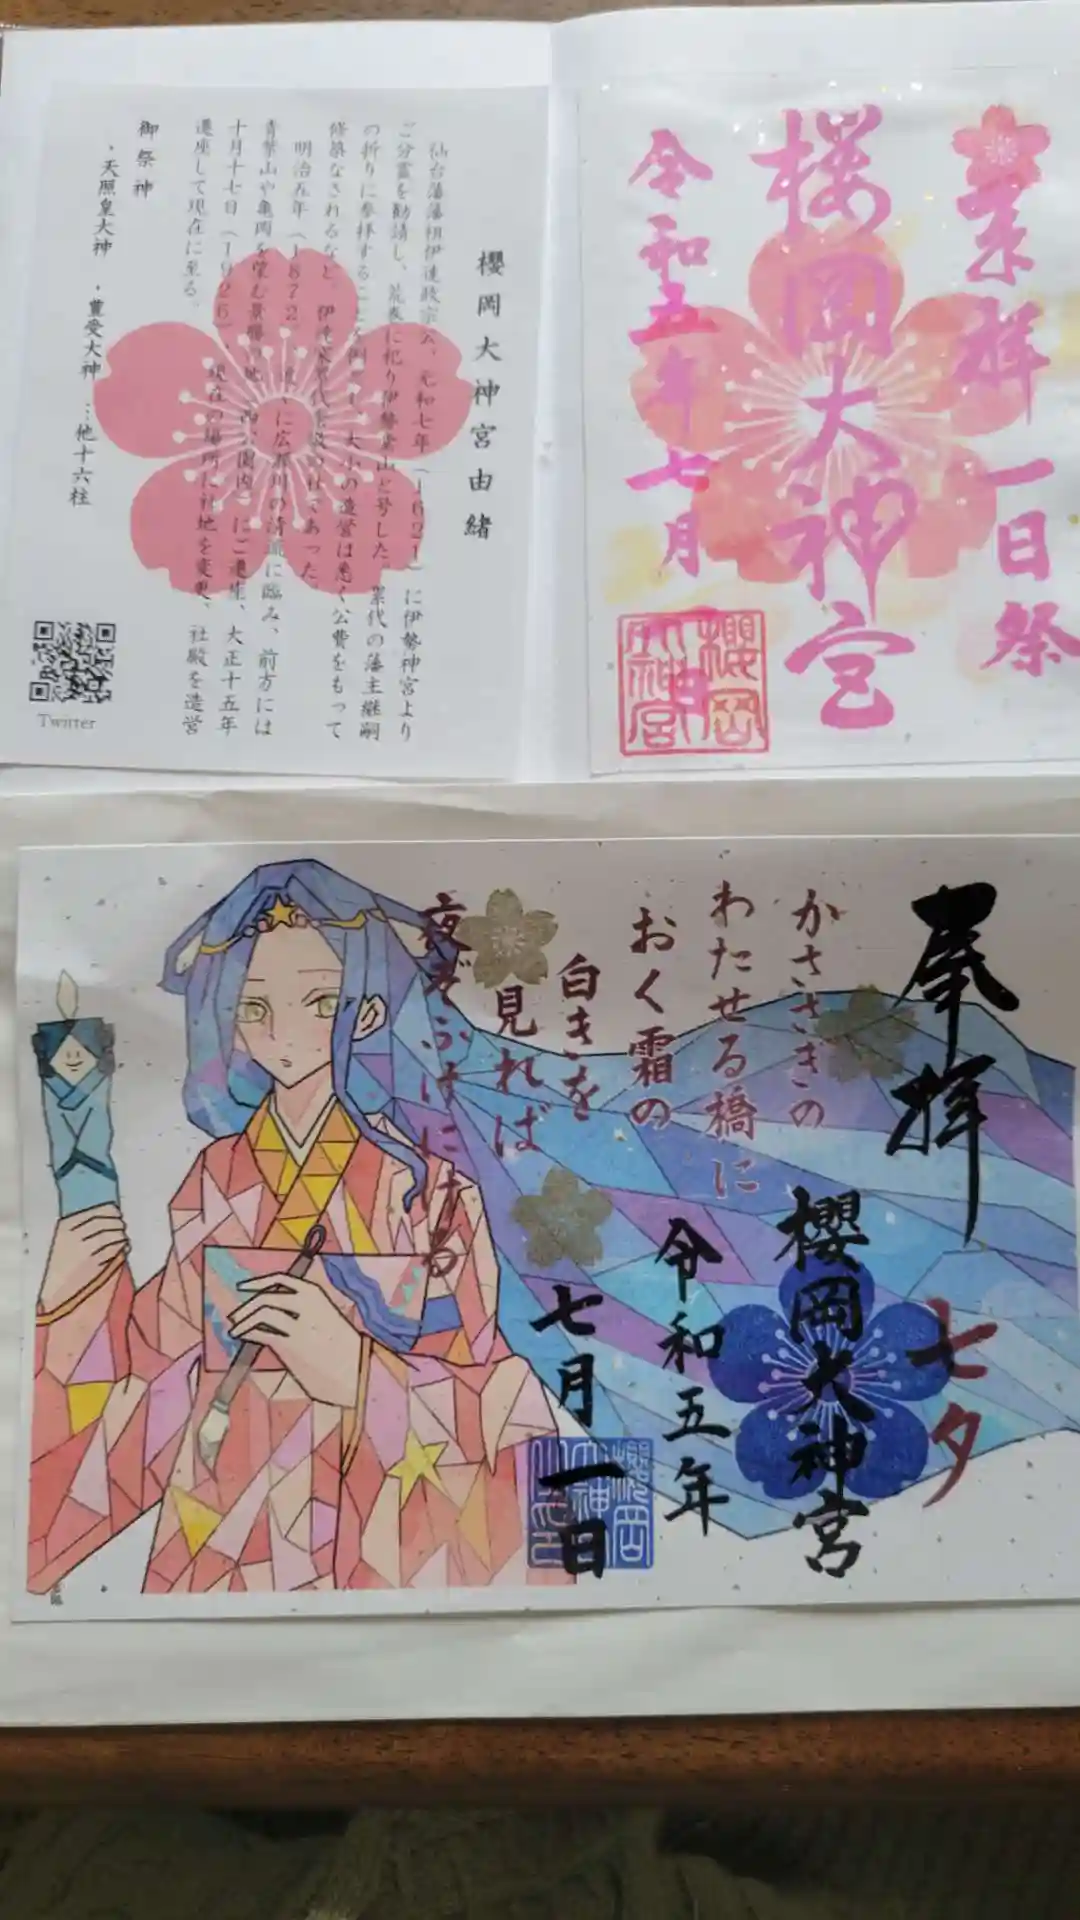 櫻岡大神宮由緒
仙台藩藩祖伊達政宗公、元和七年(1621)に伊勢神宮より
ご分霊を勧請し、荒巻に祀り伊勢堂山と号した。累代の藩主継嗣
の折りに参拝することを例とし、大小の造営は悉く公費をもって
修築なされるなど、伊達家累代尊崇の社であった。
明治五年(1872)
青葉山や亀岡を望む景勝の地(西公園内)にご遷座、大正十五年
十月十七日(1926)、現在の場所に社地を変更、社殿を造営
遷座して現在に至る。
御祭神
・天照皇大神 ・豊受大神 …他十六柱
Twitter
奉拝 一日祭
櫻岡大神宮
令和五年七月
櫻岡
大神
宮
奉拝
七夕
かささぎの
わたせる橋に
おく霜の
白きを
見れば
夜ぞふけにける
櫻岡大神宮
令和五年
七月一日
櫻岡